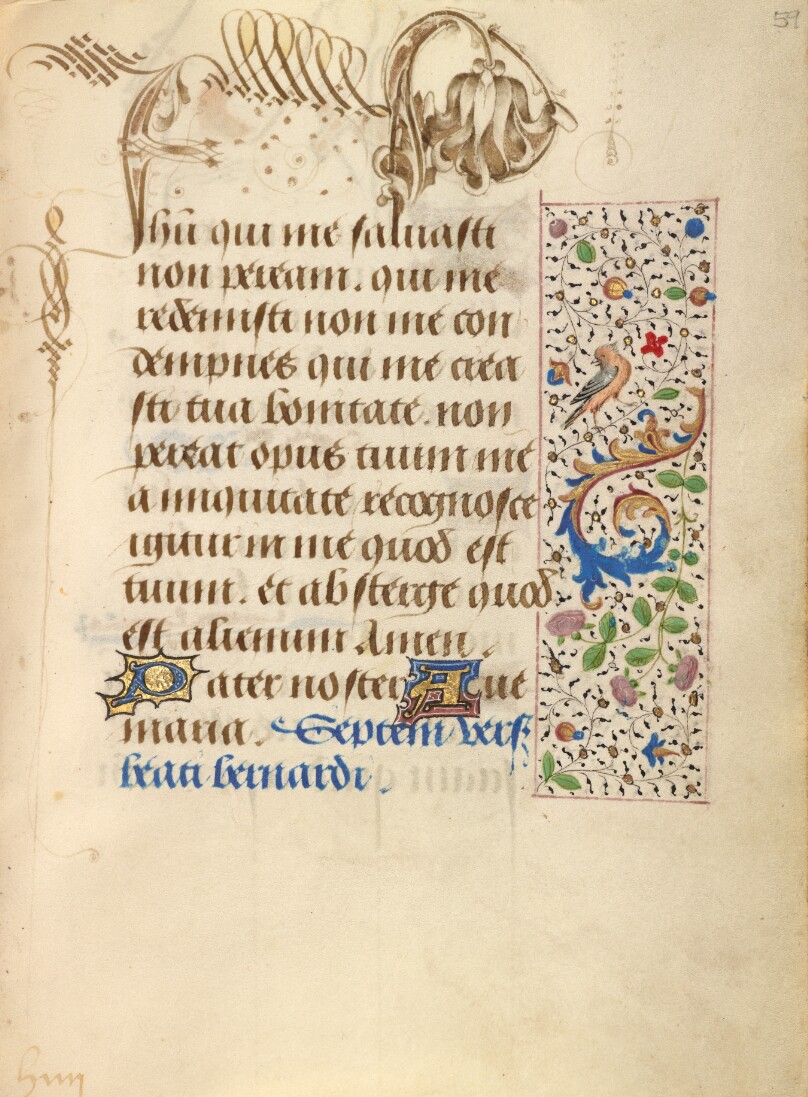 59
Jhu qui me saluasti
non peream. qui me
redemisti non me con
dempnes qui me crea
sti tua bonitate. non
pereat opus tuum me
a iniquitate recognosce
igitur in me quod est
tuum. et absterge quod
est alienum Amen.
Pater noster Aue
maria. Septem vers
beati bernardi.